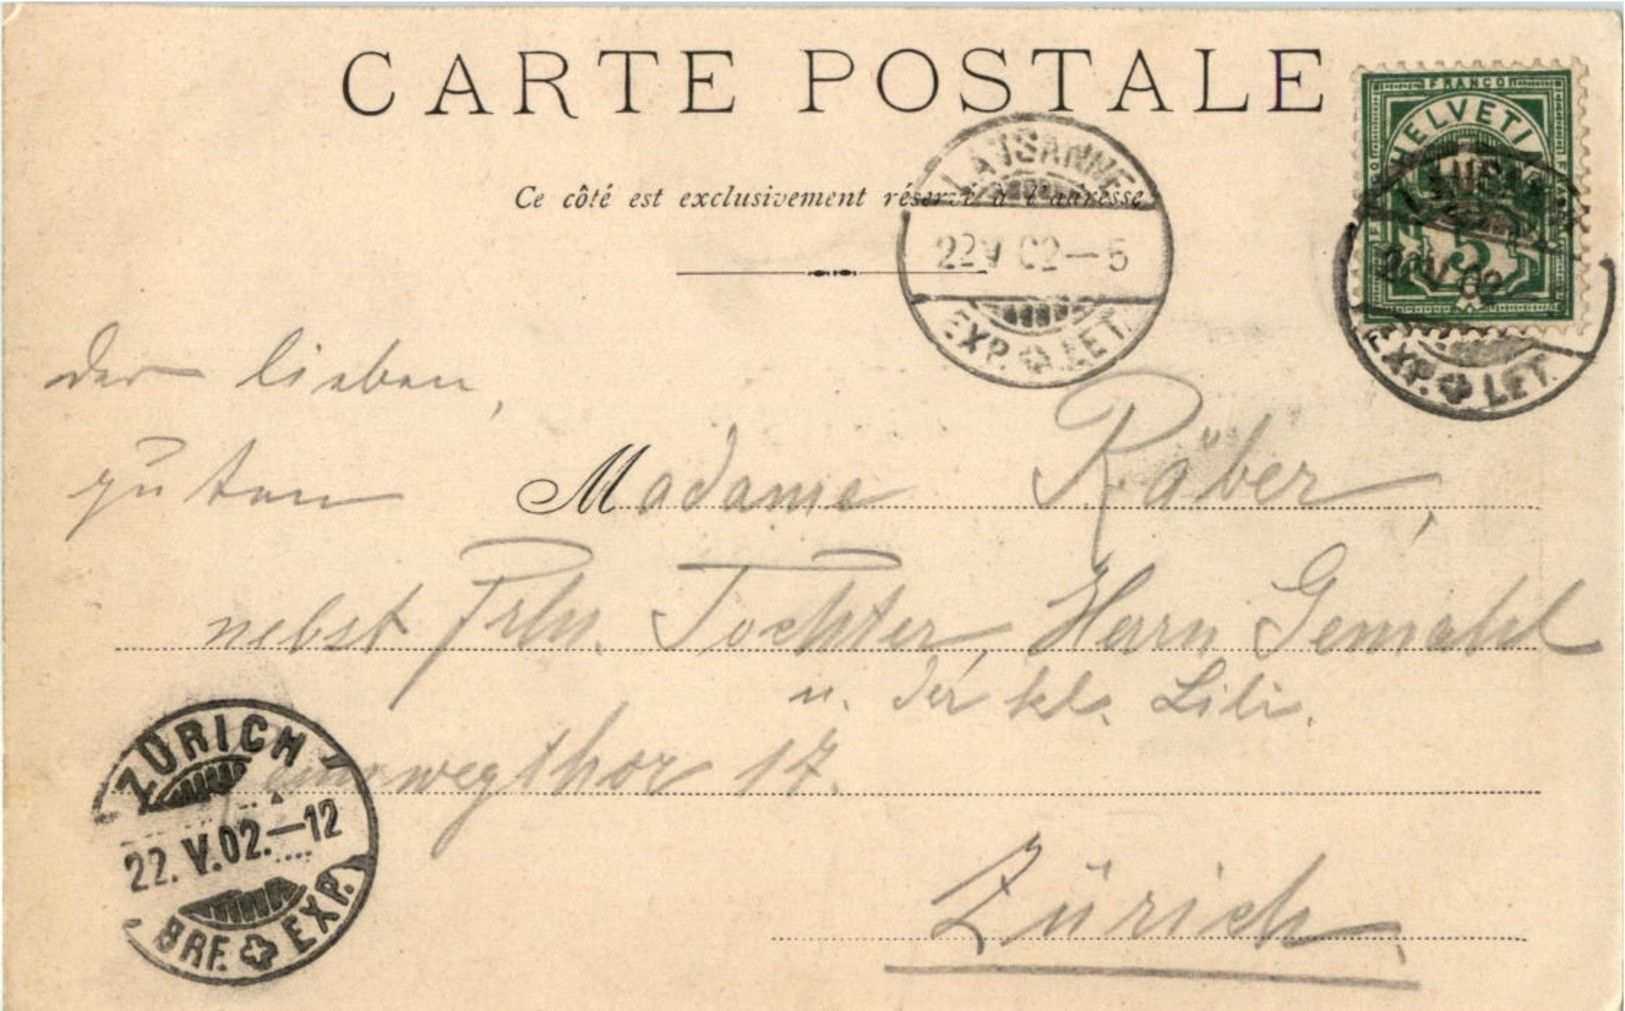 CARTE POSTALE
FRANCO
HELVETI
5
LAUSANNE
22 V 02—5
EXP. LET.
EXP. LET.
Ce côté est exclusivement réservé à l'adresse
der lieben,
guten Madame Räber,
nebst Frln. Tochter, Herrn Gemahl
u. der kl. Lili.
17.
Zürich
ZÜRICH
22. V. 02.—12
BRF. EXP.